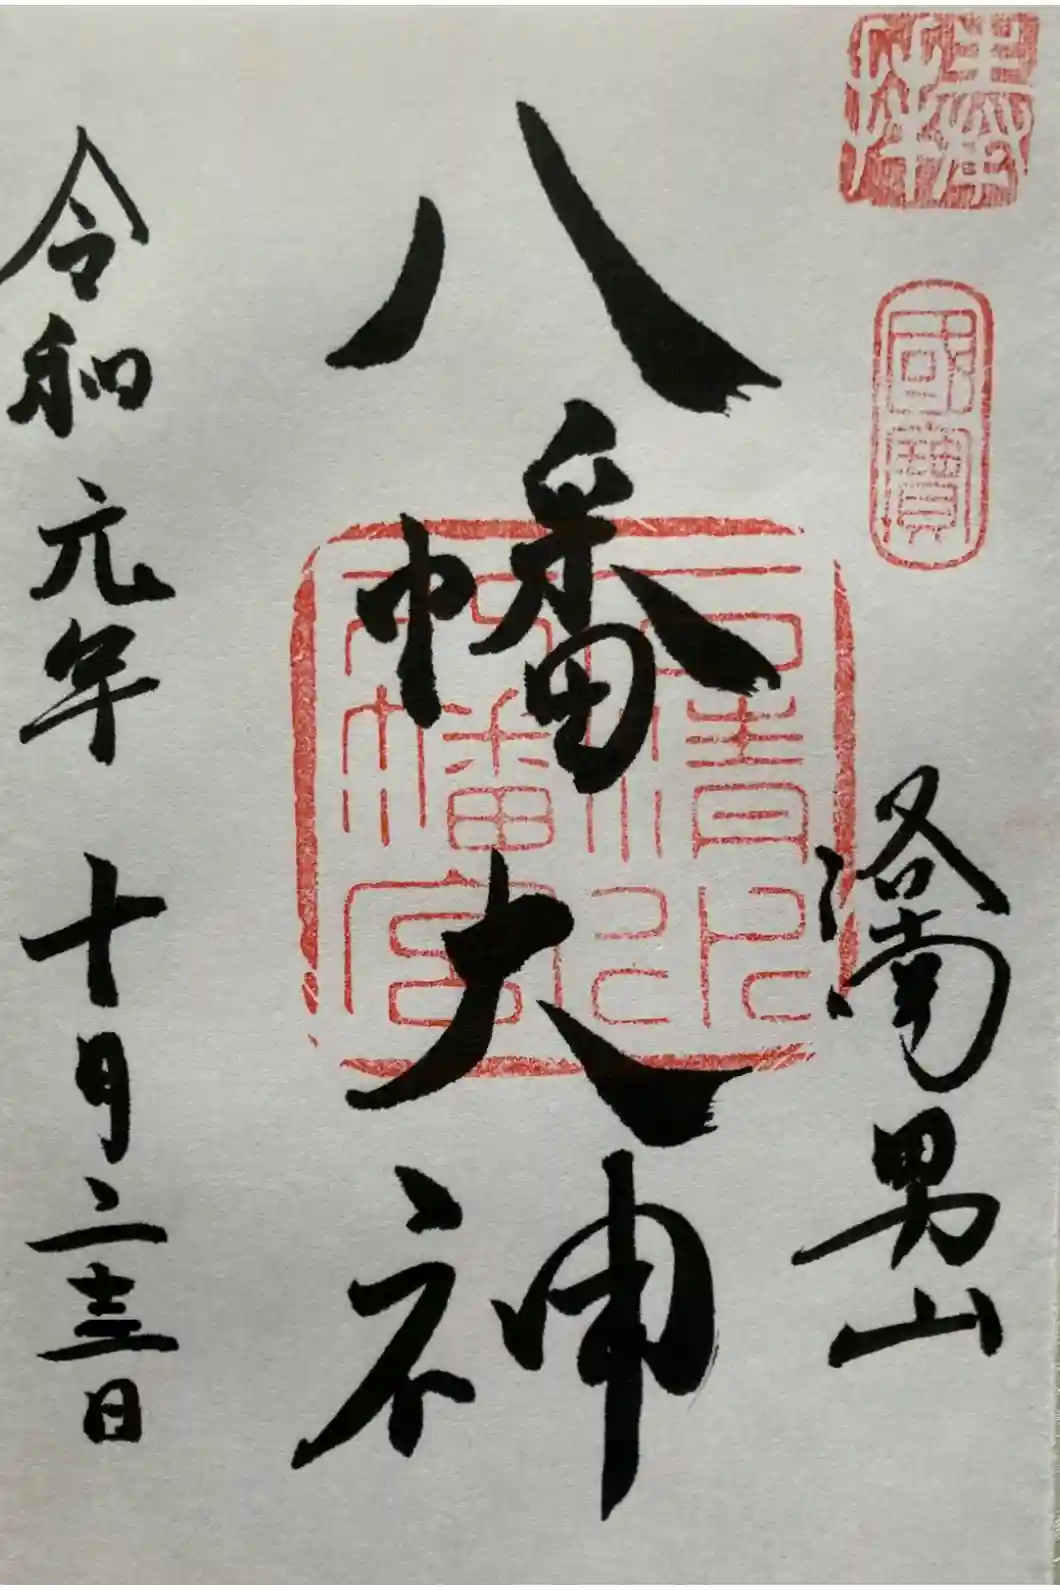 奉拝
國寶
洛南男山
八幡大神
石清水
八幡宮
令和元年 十月二十三日